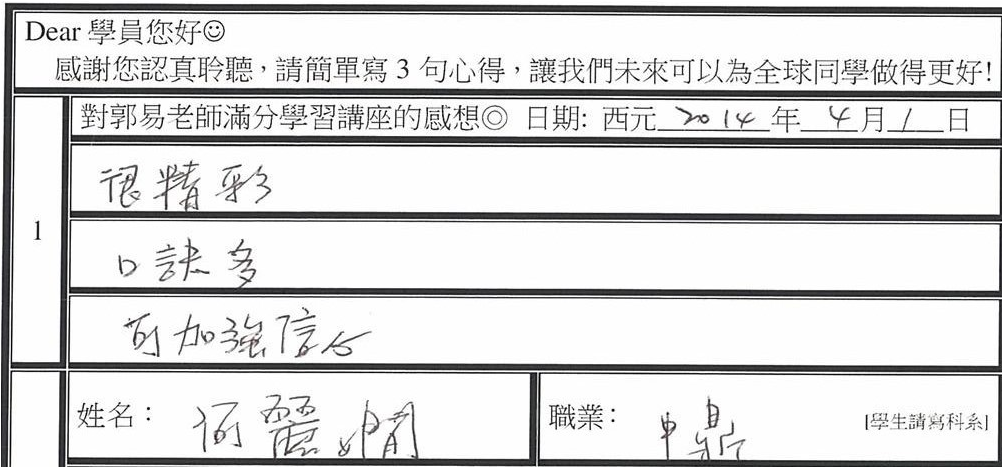 Dear 學員您好☺
感謝您認真聆聽，請簡單寫 3 句心得，讓我們未來可以為全球同學做得更好!
1
對郭易老師滿分學習講座的感想◎ 日期: 西元 2014 年 4 月 1 日
很精彩
口訣多
可加強信心
姓名： 何麗嫻
職業： 中鼎 [學生請寫科系]